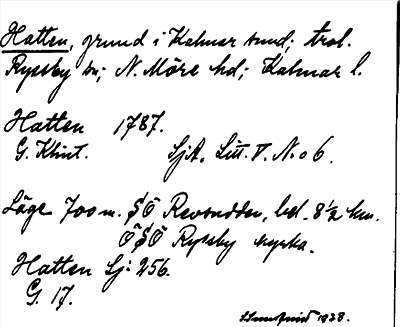 Hatten, grund i Kalmar sund; trol.
Ryssby sn; N. Möre hd; Kalmar l.
Hatten 1787.
G. Klint. SjA. Litt. V. No 6.
Läge 700 m. SO Revsudden, bel. 8½ km.
OSO Ryssby kyrka.
Hatten Sj: 256.
G. 17.
1938.